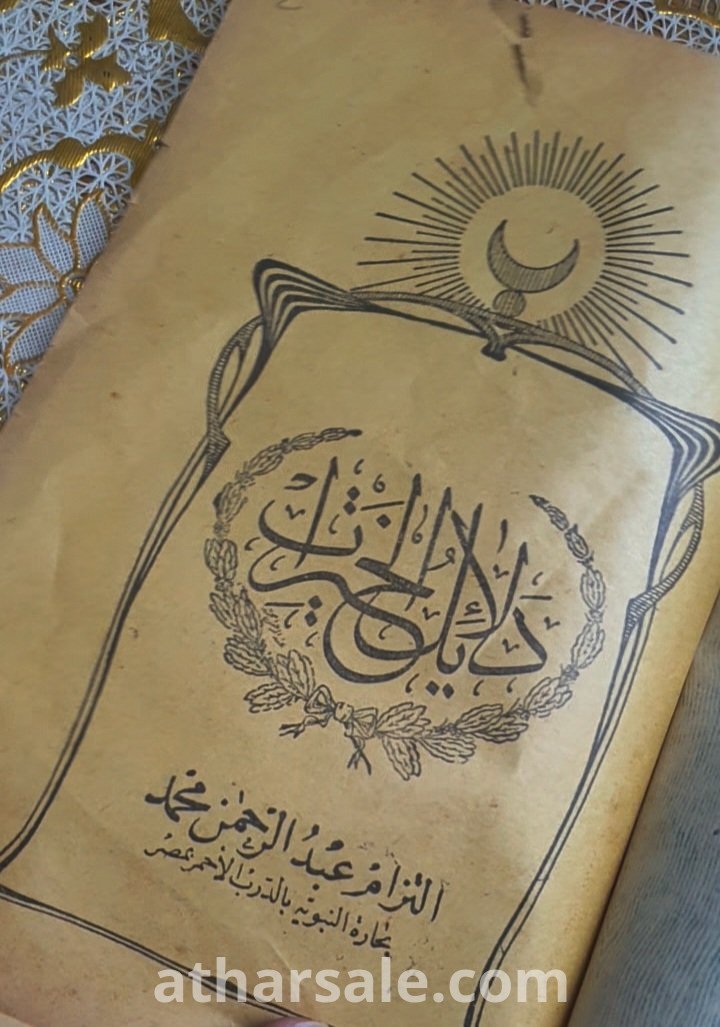 دلائل الخيرات
التزام عبد الرحمن محمد
بحارة النبويه بالدرب الأحمر بمصر
atharsale.com